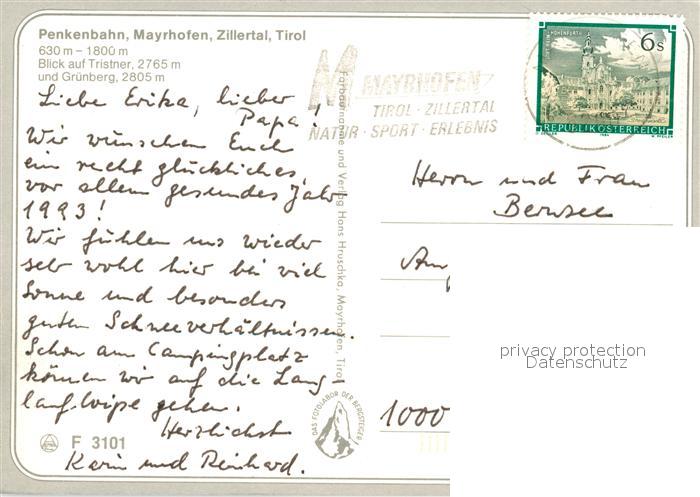 Penkenbahn, Mayrhofen, Zillertal, Tirol
630 m – 1800 m
Blick auf Tristner, 2765 m
und Grünberg, 2805 m
Liebe Erika, lieber
Papa!
Wir wünschen Euch
ein recht glückliches,
vor allem gesundes Jahr
1993!
Wir fühlen uns wieder
sehr wohl hier bei viel
Sonne und besonders
guten Schneeverhältnissen.
Schon am Campingplatz
können wir auf die Lang-
laufloipe gehen.
Herzlichst
Karin und Reinhard.
F 3101
Farbaufnahme und Verlag Hans Hruschka, Mayrhofen, Tirol
DAS FOTOLABOR DER BERGSTEIGER
MAYRHOFEN
TIROL · ZILLERTAL
NATUR · SPORT · ERLEBNIS
STIFT REIN-HOHENFURTH
6 S
REPUBLIK ÖSTERREICH
1984
Herrn und Frau
1000
privacy protection
Datenschutz